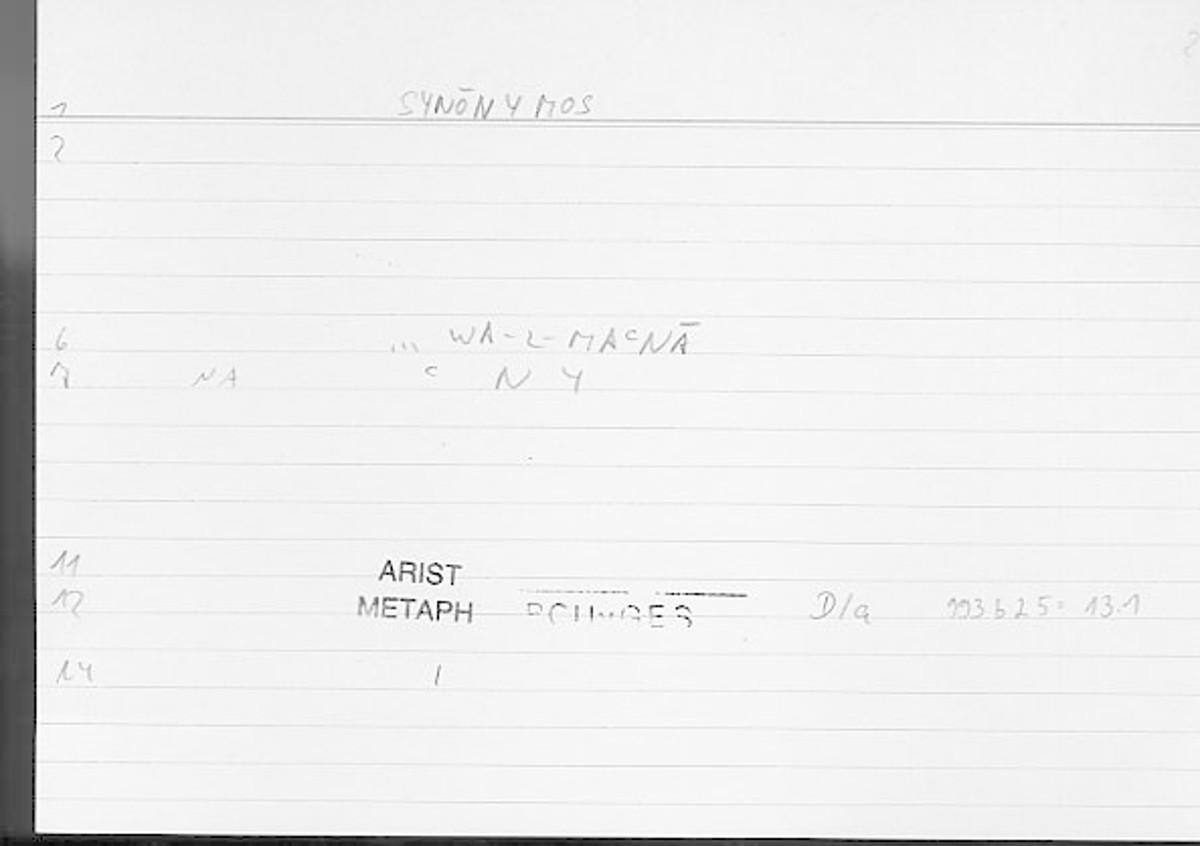 1 SYNŌNYMOS
2
6 ... WA-L-MAᶜNĀ
7 NA ᶜ N Y
11 ARIST
12 METAPH D/a 993b25: 13.1
14 /